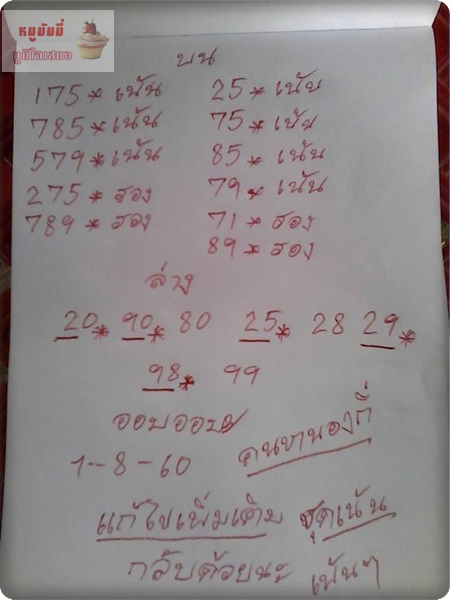 หมูมัมมี่
ภูมิใจเสมอ
บน
175* เน้น 25* เน้น
785* เน้น 75* เน้น
579* เน้น 85* เน้น
275* รอง 79* เน้น
789* รอง 71* รอง
89* รอง
ล่าง
20* 90* 80 25* 28 29*
98* 99
ออมออม
1-8-60 คนหนองกี่
แก้ไขเพิ่มเติม ชุดเน้น
กลับด้วยนะ เน้นๆ